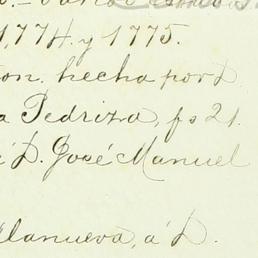 1,774. y 1775.
hecha por D.
Pedriza, fs 21.
D. José Manuel
llanueva, a' D.